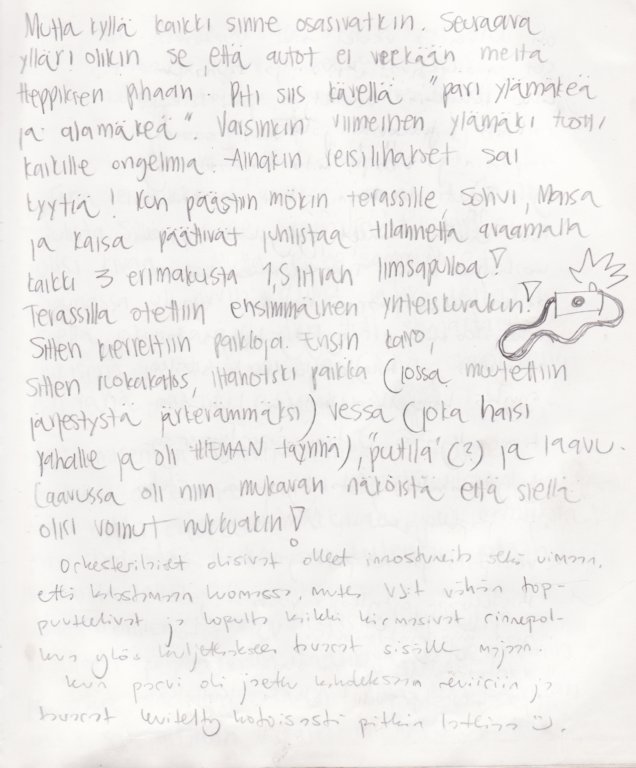 Mutta kyllä kaikki sinne osasivatkin. Seuraava
ylläri olikin se, että autot ei veekään meitä
Heppiksen pihaan. Piti siis kävellä "pari ylämäkeä
ja alamäkeä". Varsinkin viimeinen ylämäki tuotti
kaikille ongelmia. Ainakin reisilihakset sai
kyytiä! Kun päästiin mökin terassille, Sohvi, Maisa
ja Kaisa päättivät juhlistaa tilannetta avaamalla
kaikki 3 erimakuista 1,5 litran limsapulloa!
Terassilla otettiin ensimmäinen yhteiskuvakin!
Sitten kierreltiin paikkoja. Ensin
Sitten ruokakatos, iltanotski paikka (jossa muutettiin
järjestystä järkevämmäksi) vessa (joka haisi
pahalle ja oli HIEMAN täynnä), "putila" (?) ja laavu.
Laavussa oli niin mukavan näköistä että siellä
olisi voinut nukkuakin!
Orkesterilaiset olisivat olleet innostuneita sekä uimaan,
että kalastamaan luomassa, mutta VJ:t vähän top-
puuttelivat ja lopulta kaikki kirmasivat rinnepol-
kua ylös kuljettaakseen tavarat sisälle majaan.
Kun parvi oli jaettu kahdeksaan reviiriin ja
tavarat levitelty kotoisasti pitkin lattiaa :).